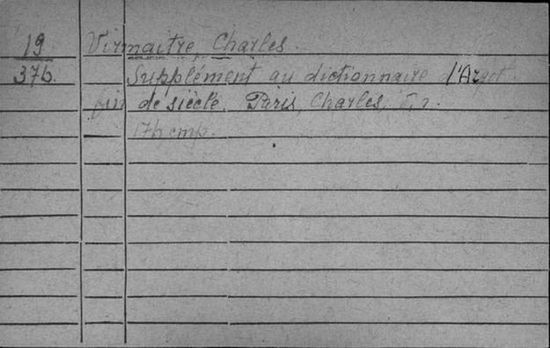 19 Virmaitre, Charles.
376. Supplément au dictionnaire d'Argot
fin de siècle. Paris, Charles, г.
cmp.